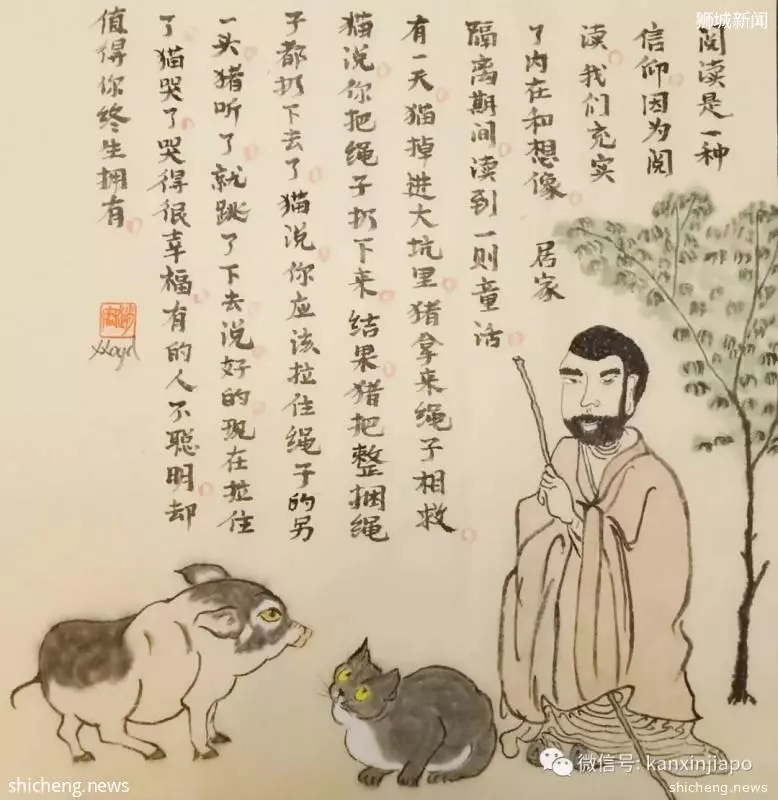 狮城新闻
阅读是一种
信仰因为阅
读我们充实
了内在和想像 居家
隔离期间读到一则童话
有一天猫掉进大坑里猪拿来绳子相救
猫说你把绳子扔下来结果猪把整捆绳
子都扔下去了猫说你应该拉住绳子的另
一头猪听了就跳了下去说好的现在拉住
了猫哭了哭得很幸福有的人不聪明却
值得你终生拥有
微信号: kanxinjiapo
shicheng.news
shicheng.news